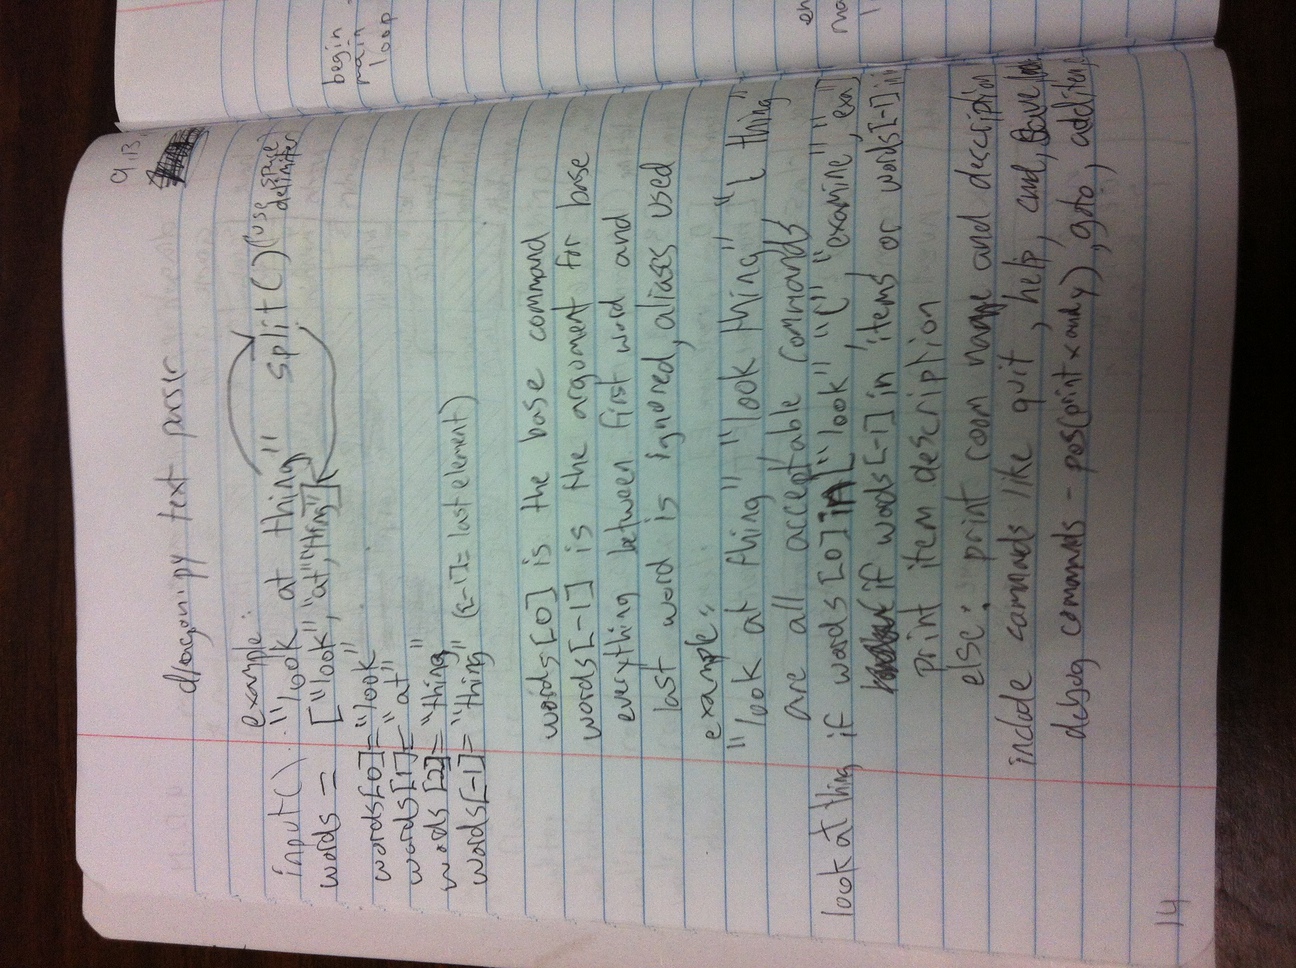 9.13.
dragon.py text parser
example:
input() "look at thing" split() (use space delimiter)
words = ["look", "at", "thing"]
words[0]="look"
words[1]="at"
words[2]="thing"
words[-1]="thing" ([-1]= last element)
words[0] is the base command
words[-1] is the argument for base
everything between first word and
last word is ignored, aliases used
example:
"look at thing", "look thing", "l thing"
are all acceptable commands
look at thing if words[0] in ["look", "l", "examine", "exa]
if words[-1] in items or words[-1] in
print item description
else: print room name and description
include commnads like quit, help, cmd, save,
debug comamnds - pos(print x and y), goto, additem,
14
begin
main
loop
en
ma
l